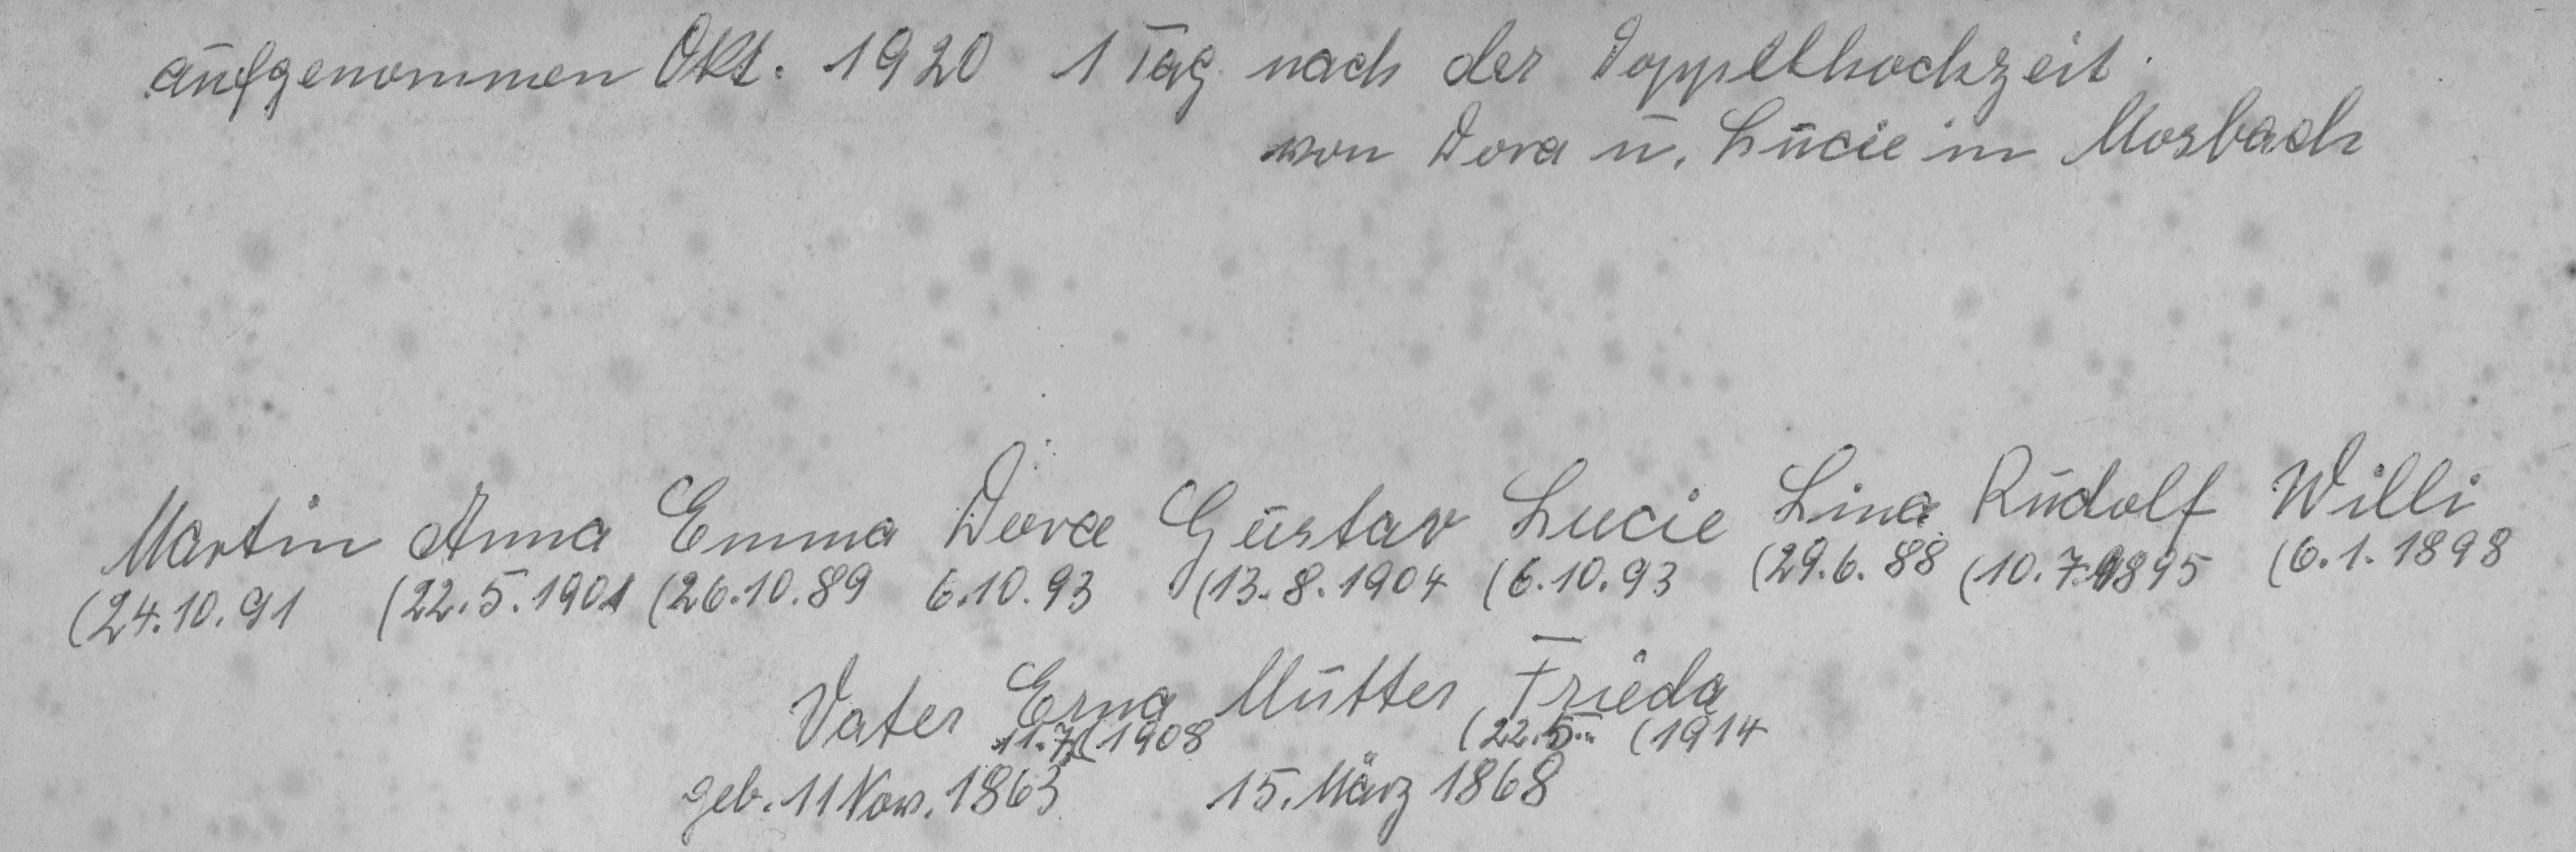 aufgenommen Okt. 1920 1 Tag nach der Doppelhochzeit.
von Dora u. Lucie in Mosbach
Martin Anna Emma Dora Gustav Lucie Lina Rudolf Willi
(24.10.91 (22.5.1901 (26.10.89 6.10.93 (13.8.1904 (6.10.93 (29.6.88 (10.7.1895 (6.1.1898
Vater Erna Mutter Frieda
11.7.(1908 (22.5. (1914
geb. 11 Nov. 1863 15. März 1868